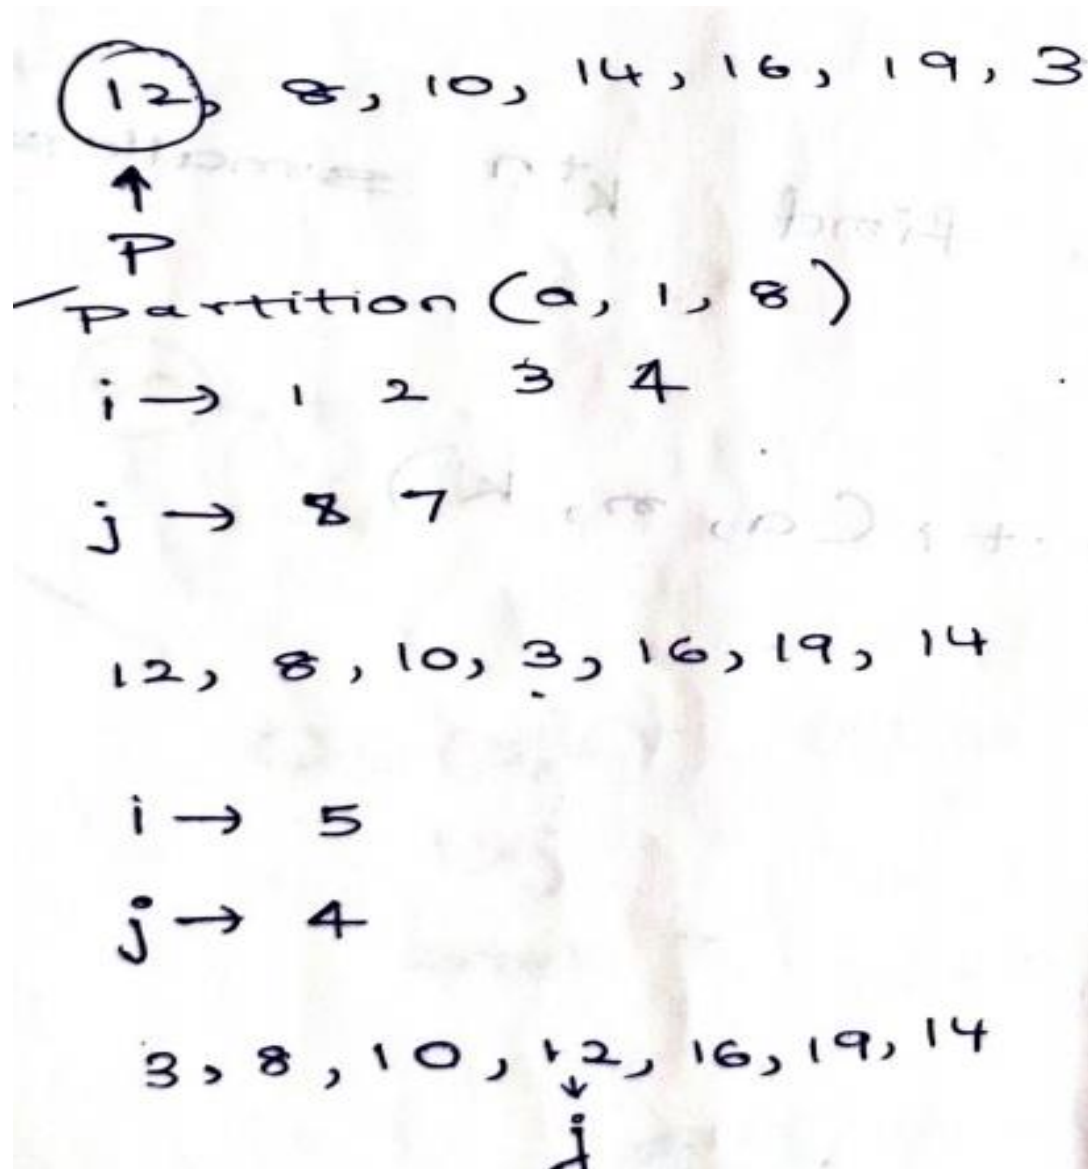 12, 8, 10, 14, 16, 19, 3
↑
P
Partition (a, 1, 8)
i → 1 2 3 4
j → 8 7
12, 8, 10, 3, 16, 19, 14
i → 5
j → 4
3, 8, 10, 12, 16, 19, 14
↓
j